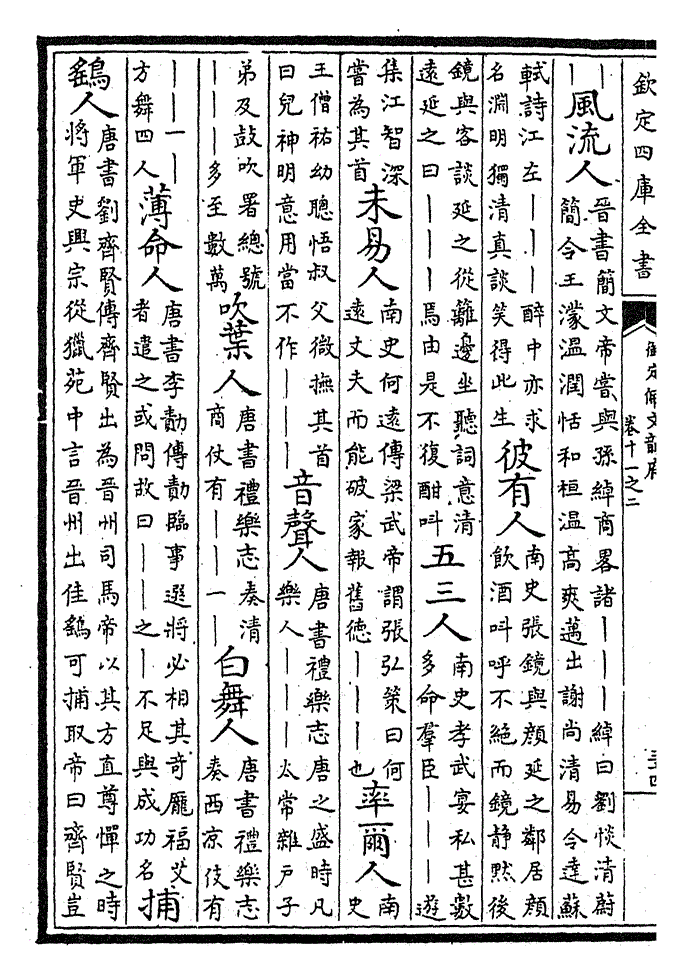 欽定四庫全書
御定佩文韻府
卷十一之二
三十四
｜｜
｜｜
風流人
晉書簡文帝嘗與孫綽商畧諸｜｜｜綽曰劉惔清蔚
簡令王濛溫潤恬和桓溫高爽邁出謝尚清易令達蘇
軾詩江左｜｜｜醉中亦求
名淵明獨清真談笑得此生
彼有人
南史張鏡與顔延之鄰居顔
飲酒呌呼不絶而鏡静黙後
鏡與客談延之從籬邊坐聽詞意清
遠延之曰｜｜｜焉由是不復酣呌
五三人
南史孝武宴私甚數
多命羣臣｜｜｜遊
集江智深
嘗為其首
未易人
南史何遠傳梁武帝謂張弘策曰何
遠丈夫而能破家報舊德｜｜｜也
率爾人
南
史
王僧祐幼聰悟叔父微撫其首
曰兒神明意用當不作｜｜｜
音聲人
唐書禮樂志唐之盛時凡
樂人｜｜｜太常雜戶子
弟及鼓吹署總號
｜｜｜多至數萬
吹葉人
唐書禮樂志奏清
商伎有｜｜一｜
白舞人
唐書禮樂志
奏西凉伎有
｜｜一｜
方舞四人
薄命人
唐書李勣傳勣臨事選將必相其奇龎福艾
者遣之或問故曰｜｜之｜不足與成功名
捕
鷂人
唐書劉齊賢傳齊賢出為晉州司馬帝以其方直尊憚之時
將軍史興宗從獵苑中言晉州出佳鷂可捕取帝曰齊賢豈